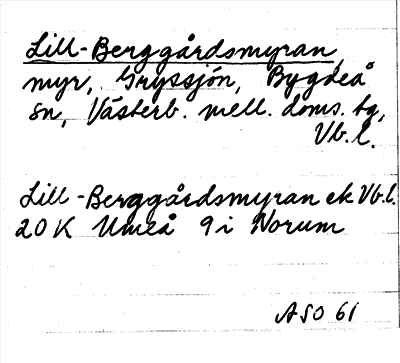 Lill-Berggårdsmyran,
myr, Gryssjön, Bygdeå
sn, Västerb. mell. doms. tg,
Vb.l.
Lill-Berggårdsmyran ek Vb.l.
20K Umeå 9i Norum
ASO 61